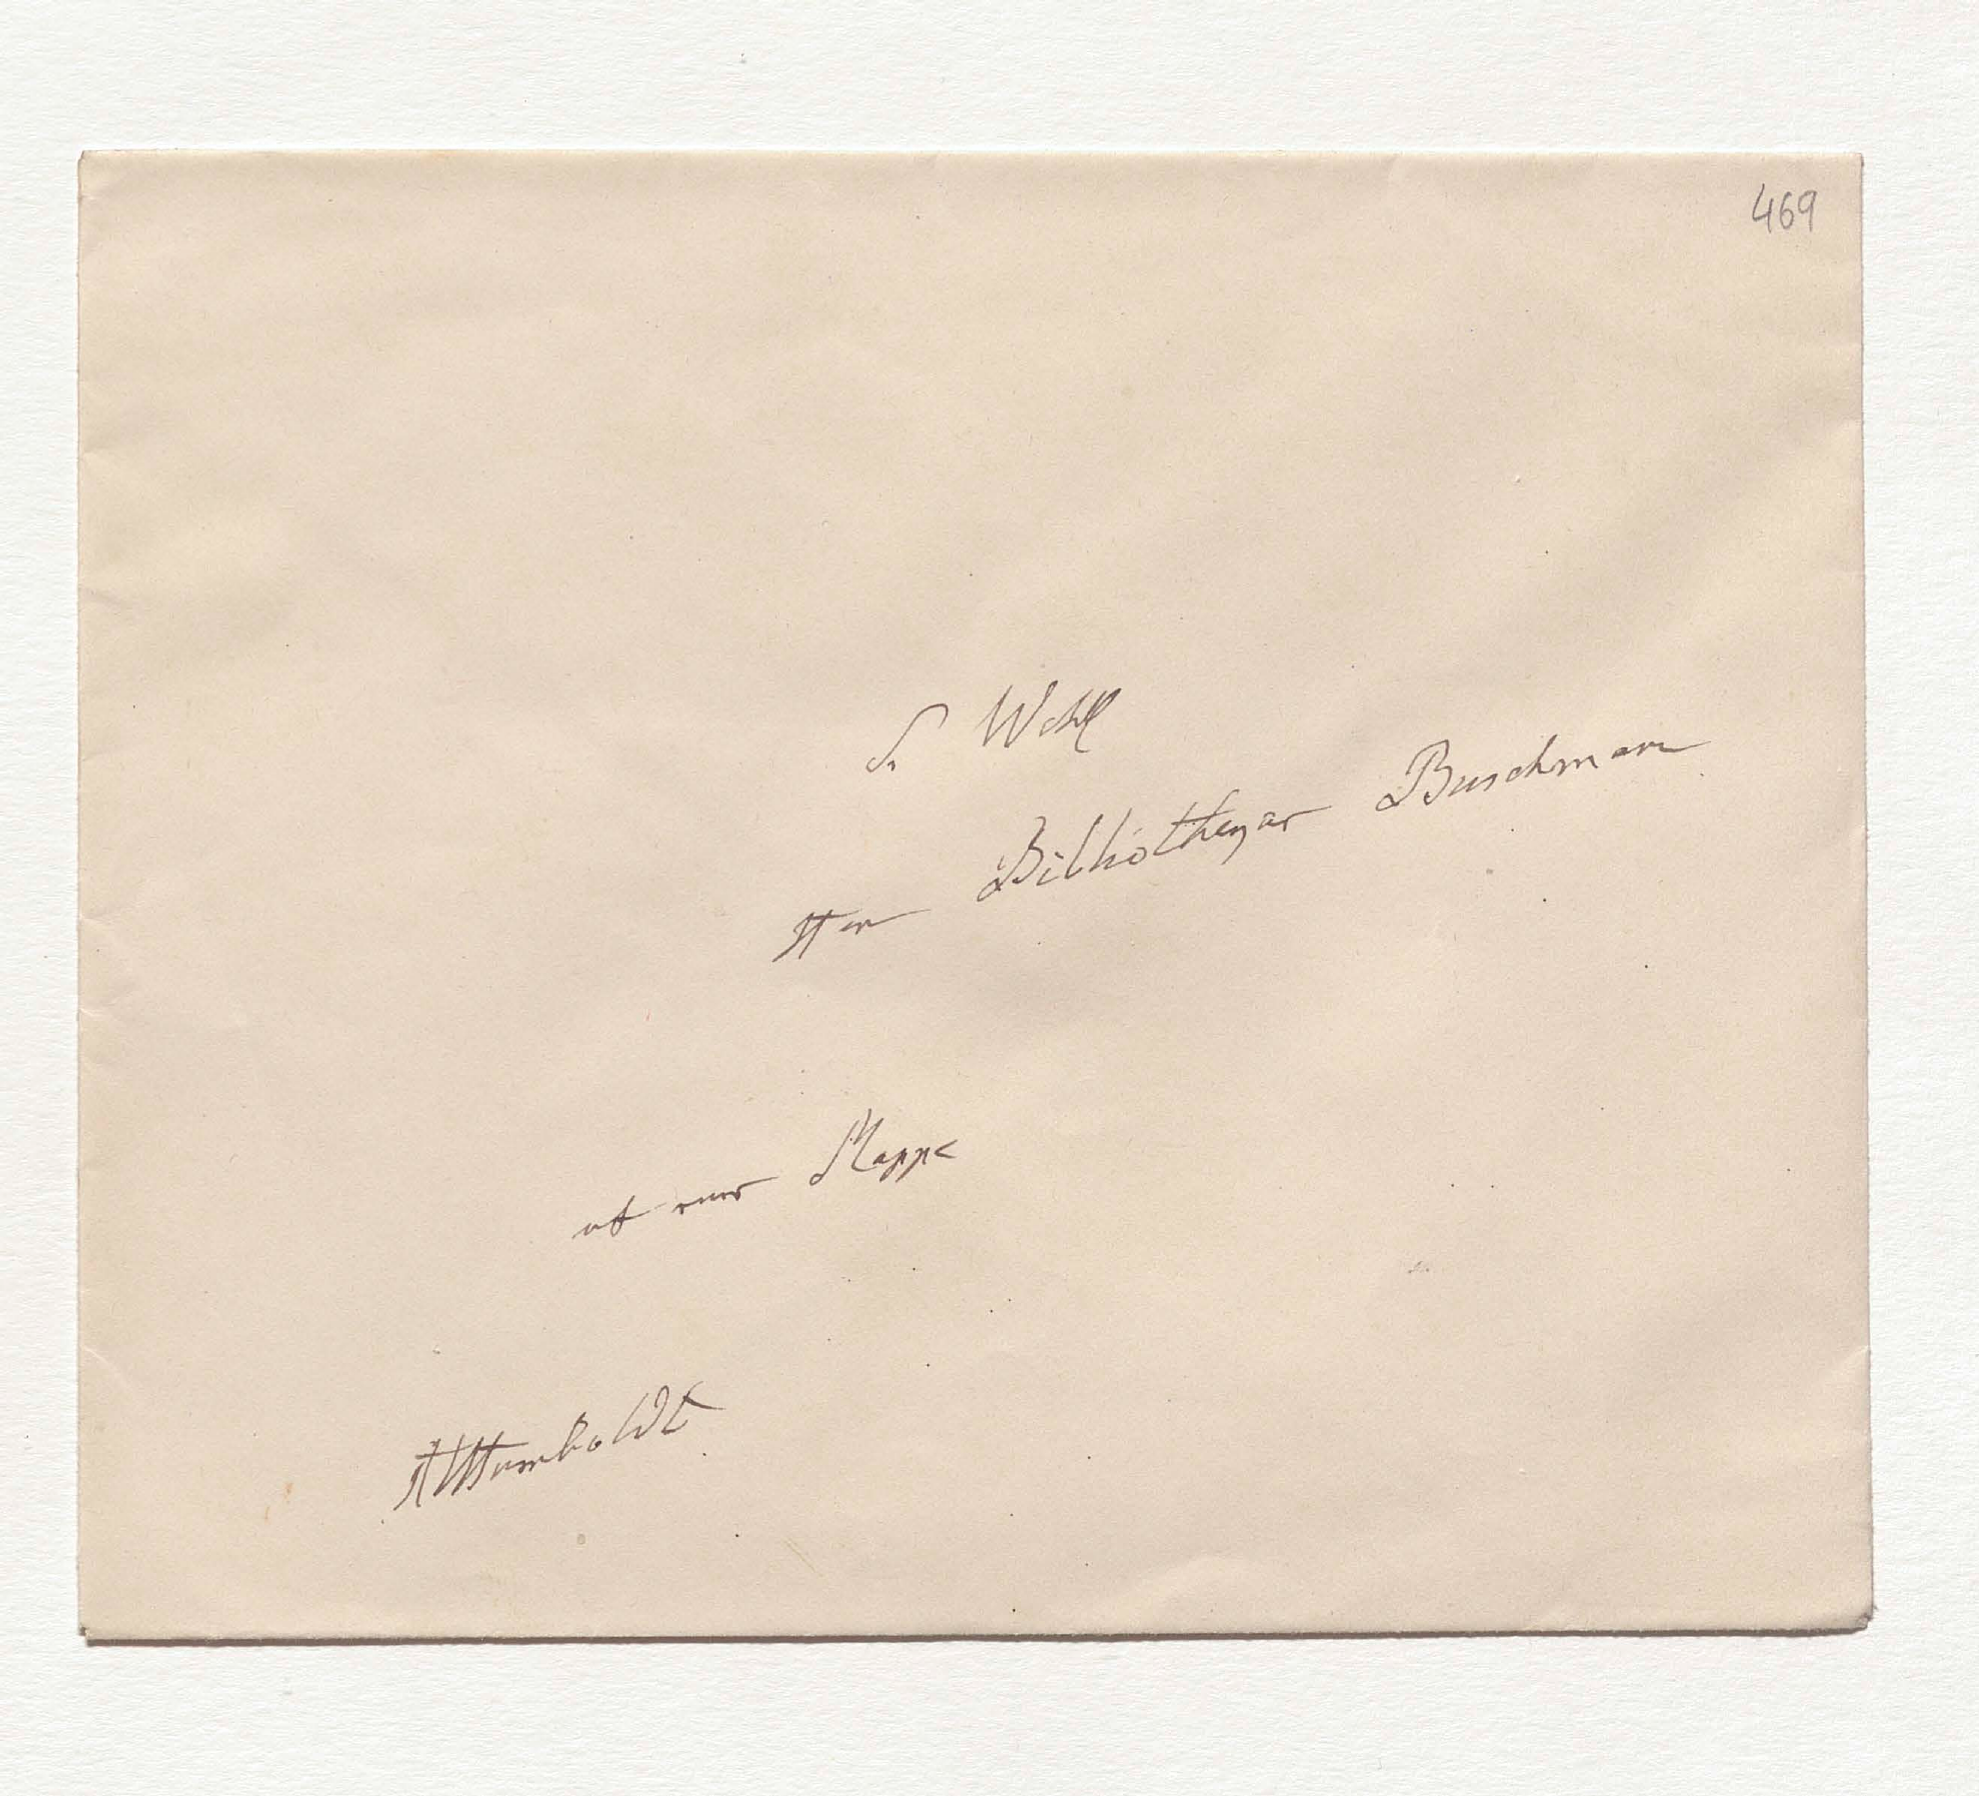 469
S. Wohl
Herr Bibliothegar Buschmann
mit einer Mappe
AvHumboldt